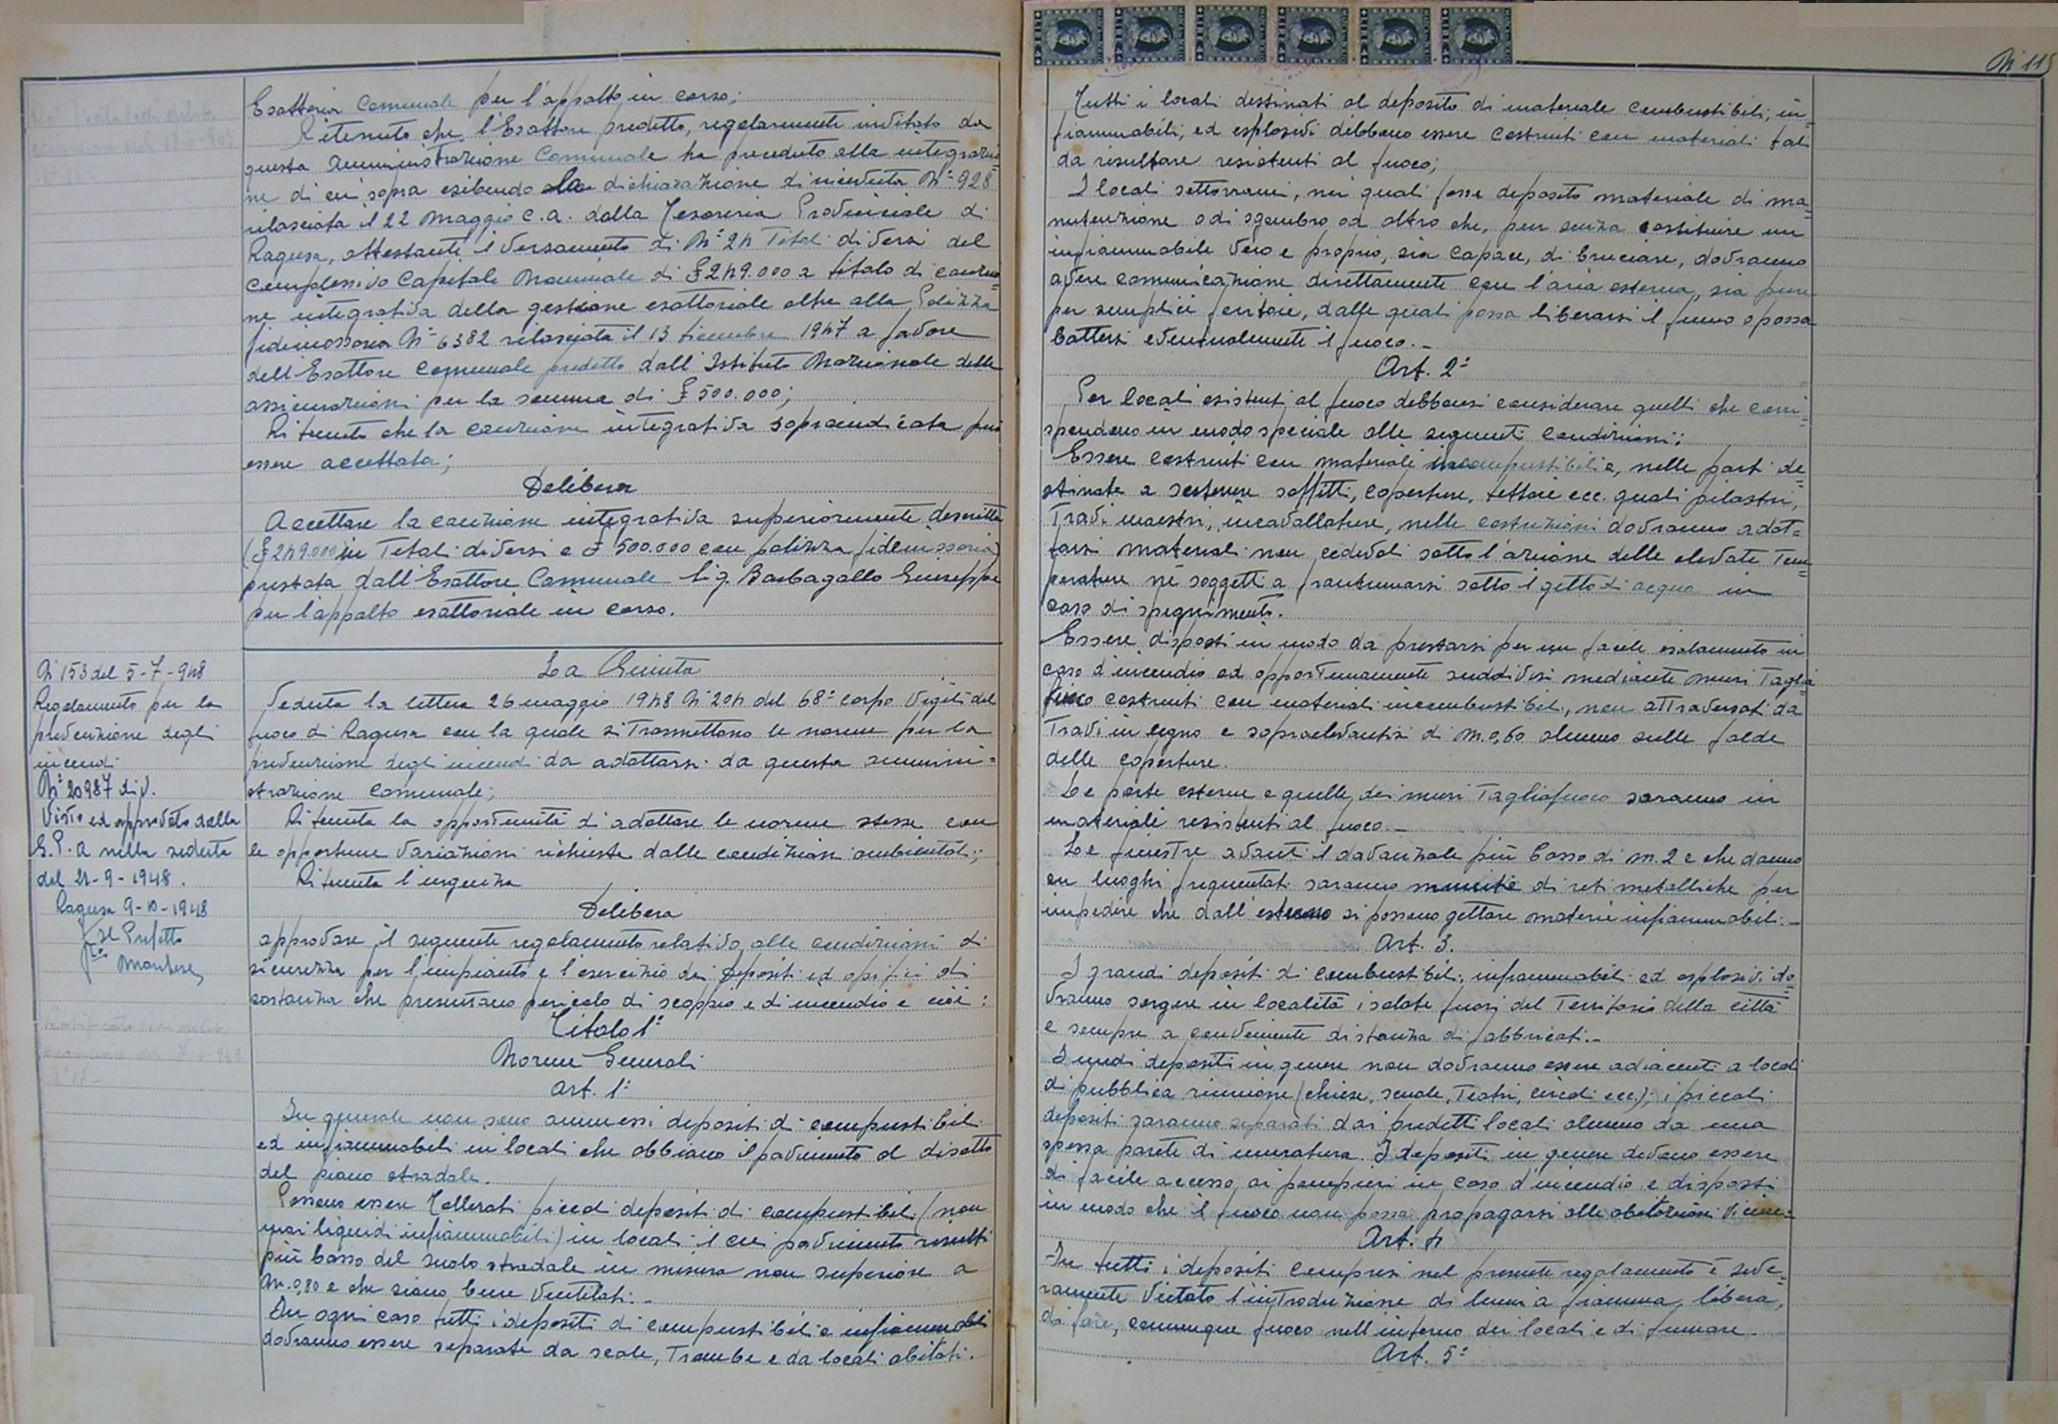 Esattoria Comunale per l'appalto in corso;
Ritenuto che l'Esattore predetto, regolarmente invitato da
questa Amministrazione Comunale ha proceduto alla integrazio
ne di cui sopra esibendo la dichiarazione di ricevuta N° 928
rilasciata il 22 Maggio c.a. dalla Tesoreria Provinciale di
Ragusa, attestante il versamento di N° 24 Titoli diversi del
complessivo Capitale Nominale di £ 249.000 a titolo di cauzio
ne integrativa della gestione esattoriale oltre alla Polizza
fidiussoria N° 6382 rilasciata il 13 dicembre 1947 a favore
dell'Esattore comunale predetto dall'Istituto Nazionale delle
assicurazioni per la somma di £ 500.000;
Ritenuto che la cauzione integrativa sopraindicata può
essere accettata;
Delibera
Accettare la cauzione integrativa superiormente descritta
(£ 249.000 in Titoli diversi e £ 500.000 con polizza fidiussoria)
prestata dall'Esattore Comunale Sig. Barbagallo Giuseppe
per l'appalto esattoriale in corso.
N 153 del 5-7-948
Regolamento per la
prevenzione degli
incendi
N° 20987 div.
Visto ed approvato dalla
G.P.A nella seduta
del 21-9-1948.
Ragusa 9-10-1948
Il Prefetto
La Giunta
Veduta la lettera 26 maggio 1948 N° 204 del 68° corpo Vigili del
fuoco di Ragusa con la quale si trasmettono le norme per la
prevenzione degli incendi da adottarsi da questa ammini=
strazione comunale;
Ritenuta la opportunità di adottare le norme stesse con
le opportune variazioni richieste dalle condizioni ambientali;
Ritenuta l'urgenza
Delibera
approvare il seguente regolamento relativo alle condizioni di
sicurezza per l'impianto e l'esercizio dei depositi ed opifici di
sostanza che presentano pericolo di scoppio e di incendio e cioè:
Titolo 1°
Norme Generali
Art. 1°
In generale non sono ammessi depositi di compustibili
ed infiammabili in locali che abbiano il pavimento al disotto
del piano stradale.
Possono essere Tollerati piccoli depositi di compustibili (non
mai liquidi infiammabili) in locali il cui pavimento risulti
più basso del suolo stradale in misura non superiore a
m. 0,80 e che siano bene ventilati.
In ogni caso tutti i depositi di compustibili e infiammabili
dovranno essere separate da scale, Trombe e da locali abitati.
N 115
Tutti i locali destinati al deposito di materiale combustibili, in=
fiammabili, ed esplosivi debbono essere costruiti con materiali tali
da risultare resistenti al fuoco;
I locali sotterranei, nei quali fosse deposito materiale di ma=
nutenzione o di sgombro od altro che, pur senza costituire un
infiammabile vero e proprio, sia capace, di bruciare, dovranno
avere comunicazione direttamente con l'aria esterna, sia pure
per semplici feritoie, dalle quali possa liberarsi il fumo o possa
battersi eventualmente il fuoco.
Art. 2°
Per locali esistenti al fuoco debbonsi considerare quelli che corri=
spondono in modo speciale alle seguenti condizioni:
Essere costruiti con materiali incompustibili e, nelle parti de
stinate a sostenere soffitti, coperture, tettoie ecc. quali pilastri,
Travi maestri, incavallature, nelle costruzioni dovranno adot=
tarsi materiali non cedevoli sotto l'azione delle elevate Tem=
perature né soggetti a frantumarsi sotto il getto di acqua in
caso di spegnimento.
Essere disposti in modo da prestarsi per un facile isolamento in
caso d'incendio ed opportunamente suddivisi mediante muri Taglia
fuoco costruiti con materiali incombustibili, non attraversati da
Travi in legno e sopraelevantisi di m. 0,60 almeno sulle falde
delle coperture.
Le porte esterne e quelle dei muri Tagliafuoco saranno in
materiali resistenti al fuoco.
Le finestre avanti il davanzale più basso di m. 2 e che danno
in luoghi frequentati saranno munite di reti metalliche per
impedire che dall'esterno si possano gettare materie infiammabili.
Art. 3.
I grandi depositi di combustibili, infiammabili ed esplosivi do=
vranno sorgere in località isolate fuori del Territorio della città
e sempre a conveniente distanza di fabbricati.
I medi depositi in genere non dovranno essere adiacenti a locali
di pubblica riunione (chiese, scuole, Teatri, circoli ecc); i piccoli
depositi saranno separati dai predetti locali almeno da una
spessa parete di muratura. I depositi in genere devono essere
di facile accesso ai pompieri in caso d'incendio e disposti
in modo che il fuoco non possa propagarsi alle abitazioni vicine.
Art. 4
In tutti i depositi compresi nel presente regolamento è seve=
ramente vietato l'introduzione di lumi a fiamma libera,
di fare, comunque fuoco nell'interno dei locali e di fumare.
Art. 5°